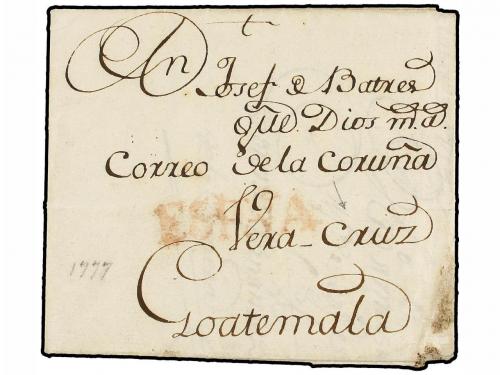 An Josef de Batres
qûe. Dios m.a.
Correo de la Coruña
Vera-Cruz
1777
Goatemala